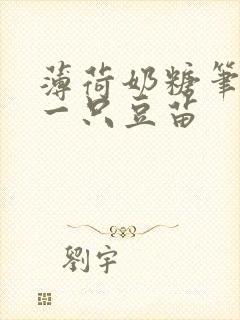 薄荷奶糖笔
一只豆苗
劉宇